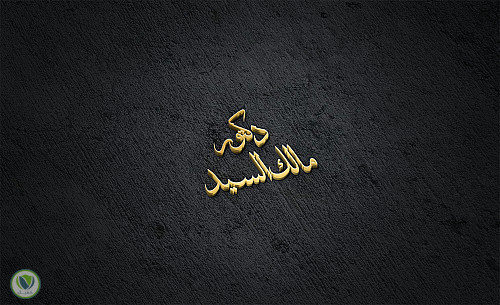 دكور
مالك السيد